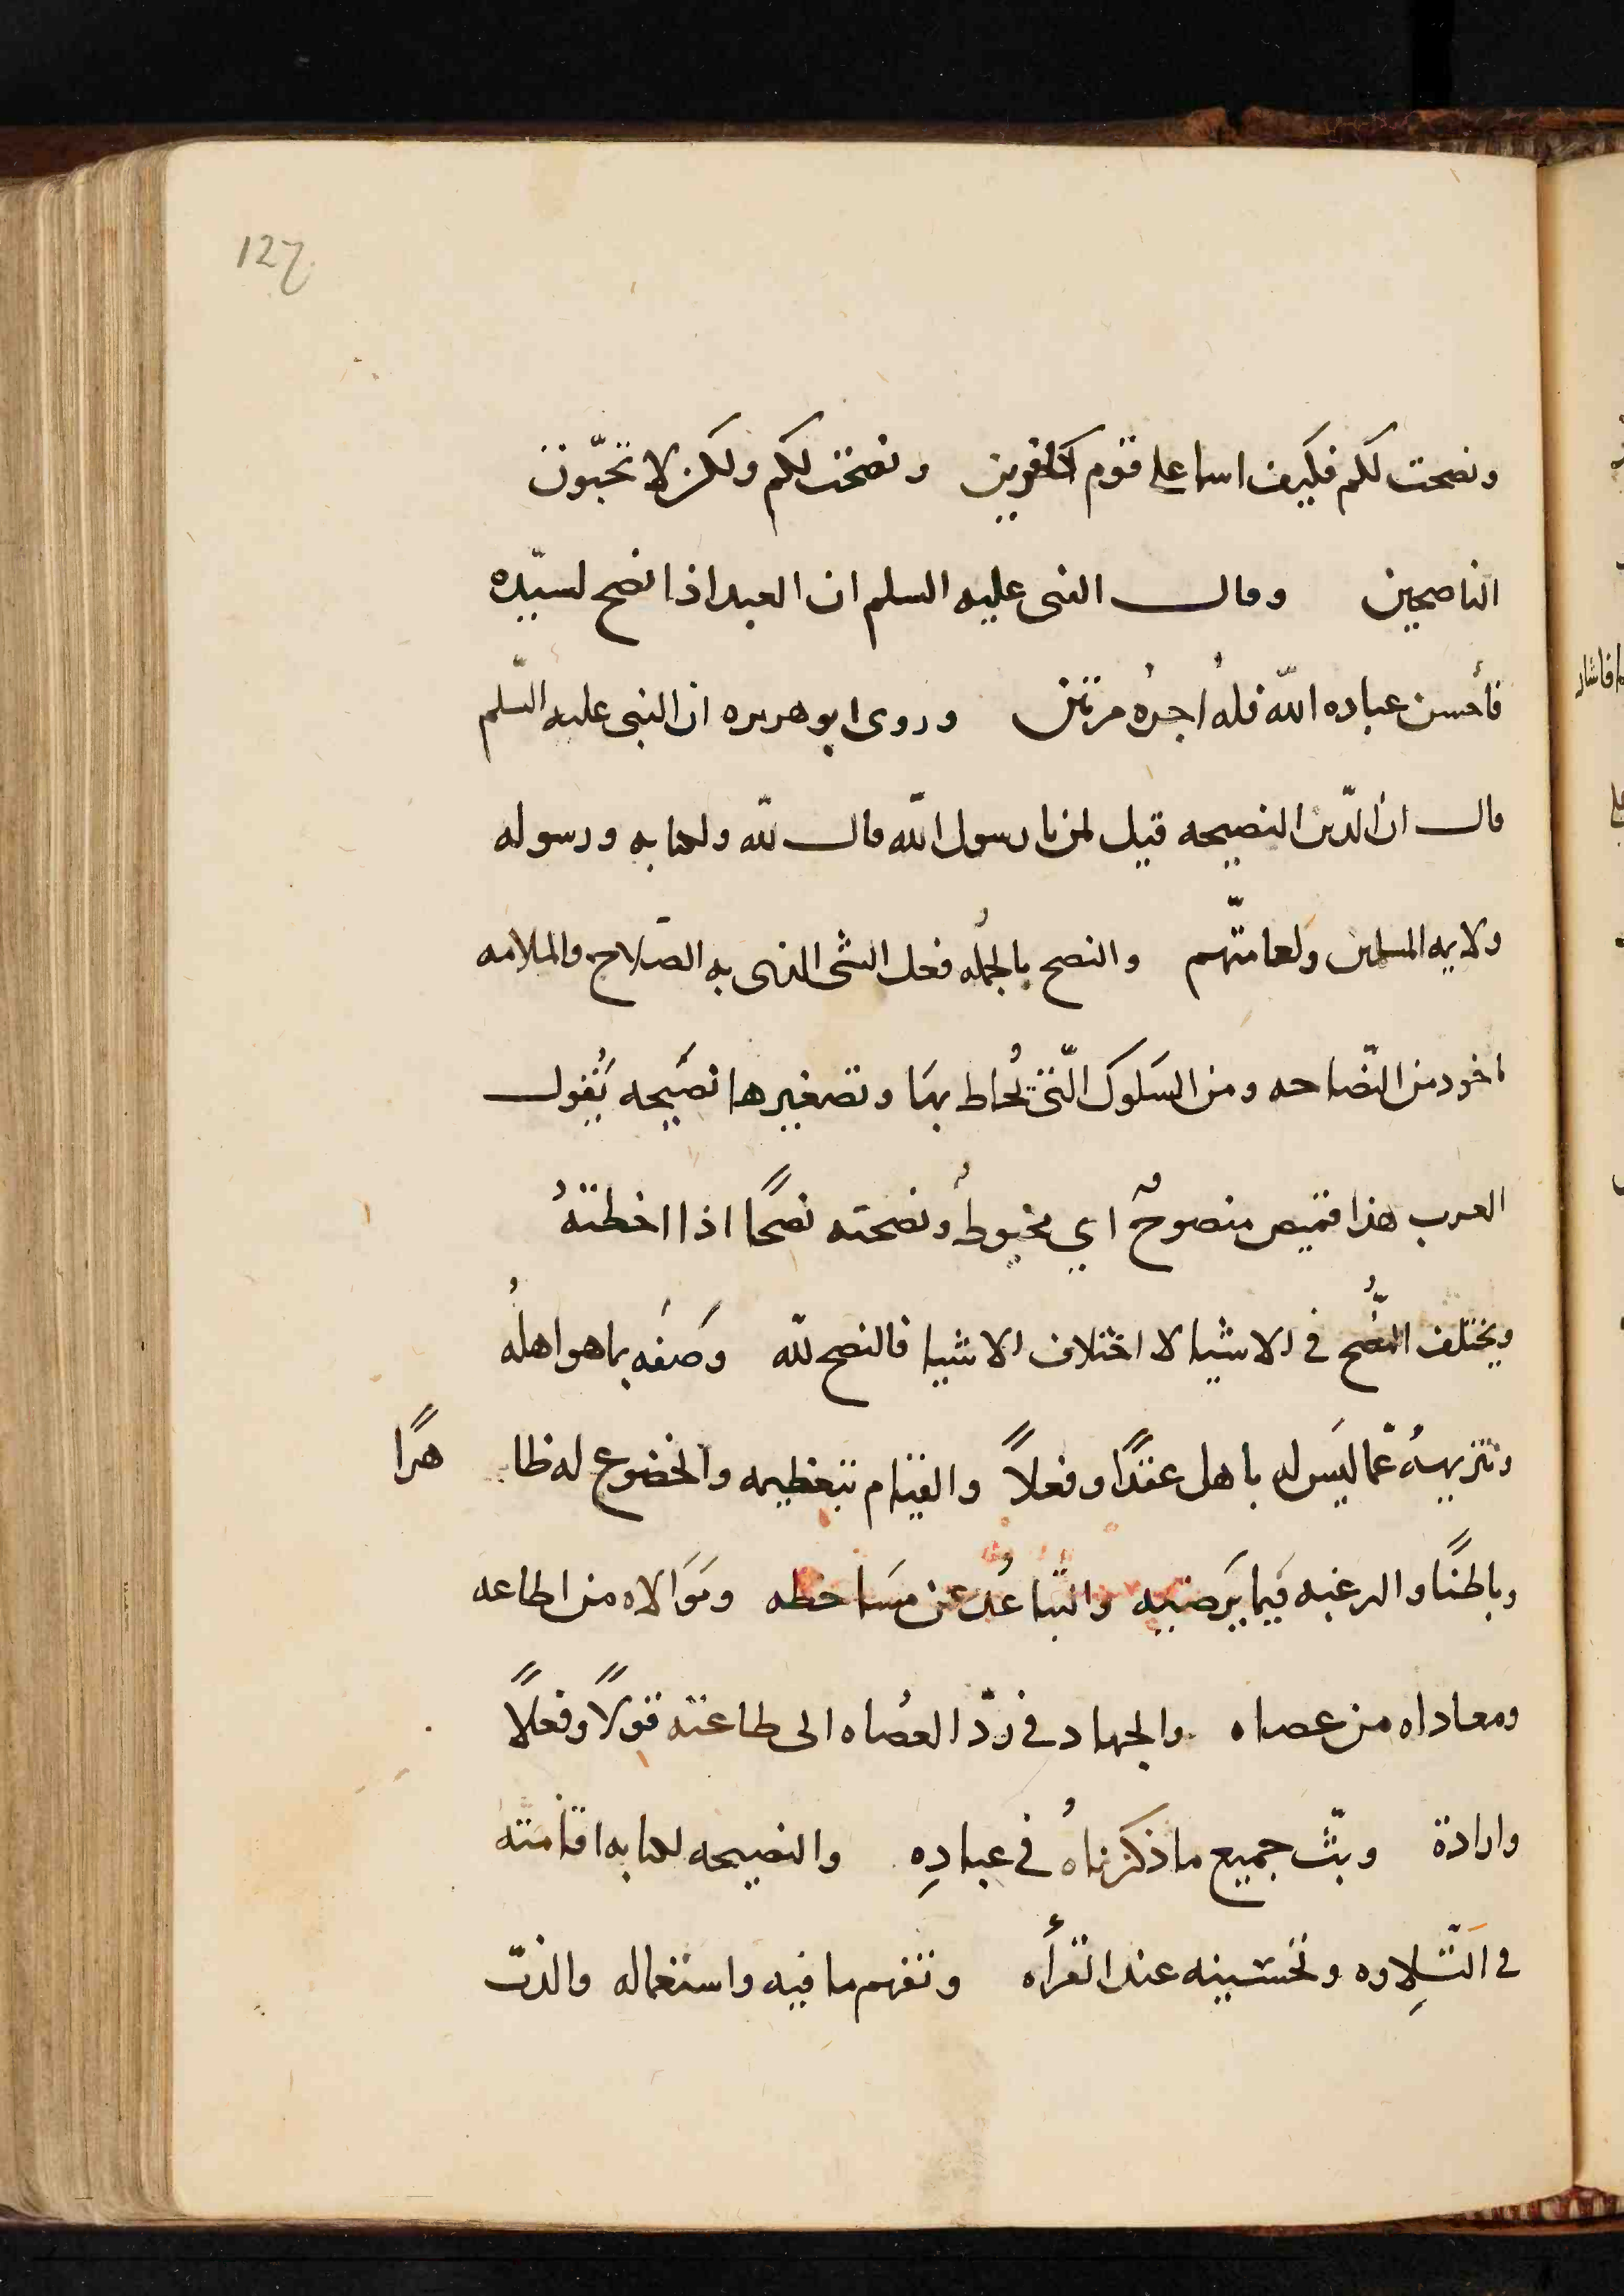 127
ونصحت لكم فكيف اسا على قوم كافرين ونصحت لكم ولكن لا تحبّون
الناصحين وقال النبى عليه السلم ان العبد اذا نصح لسيّده
فأحسن عباده الله فله اجره مرتين وروى ابو هريره ان النبى عليه السّلم
قال ان الدّين النصيحه قيل لمن يا رسول الله قال لله ولكتابه ورسوله
ولايمه المسلمين ولعامّتهم والنصح بالجمله فعل الشى الذى به الصّلاح والملامه
ماخود من النّصاحه ومن السّلوك الّتى تُخاط بها وتصغيرها نصيّحه يقول
العرب هذا قميص منصوحٌ اي مخيوطٌ ونصحته نصحًا اذا اخطتهُ
ويختلف النُّصح فى الاشيا لا اختلاف الاشيا فالنصح لله وَصفَه بما هو اهلهُ
وتنزيههُ عمّا ليَس له باهل عقدًا وفعلاً والقيام بتعظيمه والخضوع له ظا هرًا
وباطنًا والرغبه فيما يَرضيه والتّباعُد عن مسَاخطه ومَوَالاه من اطاعه
ومعاداه من عصاه والجهاد فى ردّ العصُاه الى طاعته قولاً وفعلاً
وارادة وبثّ جميع ما ذكرناهُ فى عبادِه والنصيحه لكتابه اقامته
فى التّلِاوه وتحسينه عند القرأه وتفهم ما فيه واستعماله والذبّ